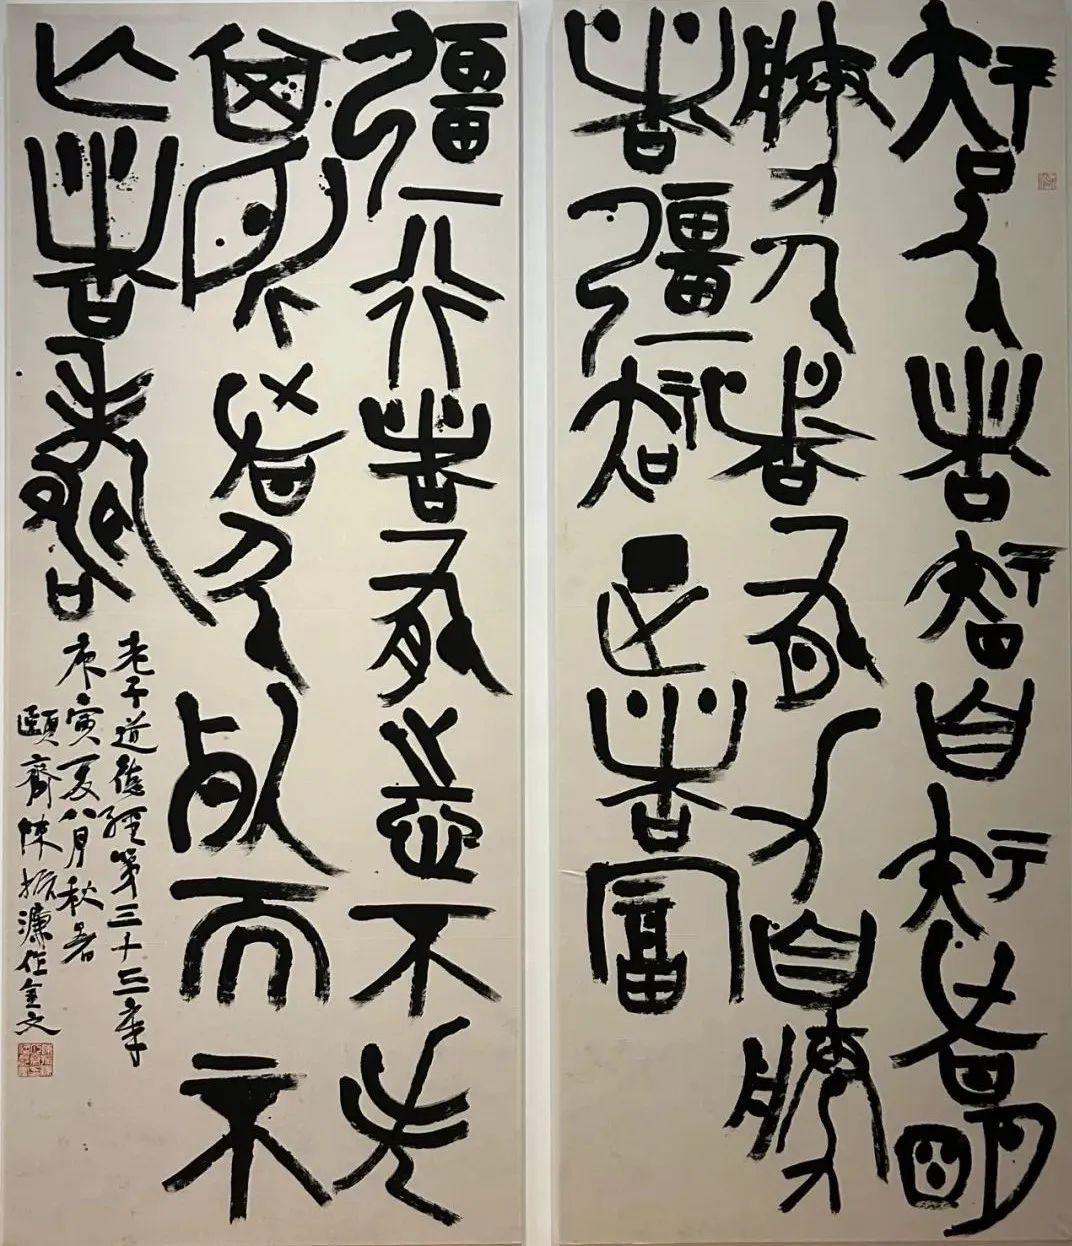 知人者智自知者明
勝人者有力自勝
者彊知足者富
彊行者有志不失
其所者久死而不
亡者壽
老子道德經第三十三章
庚寅夏八月秋暑
頤齋陳振濂作金文